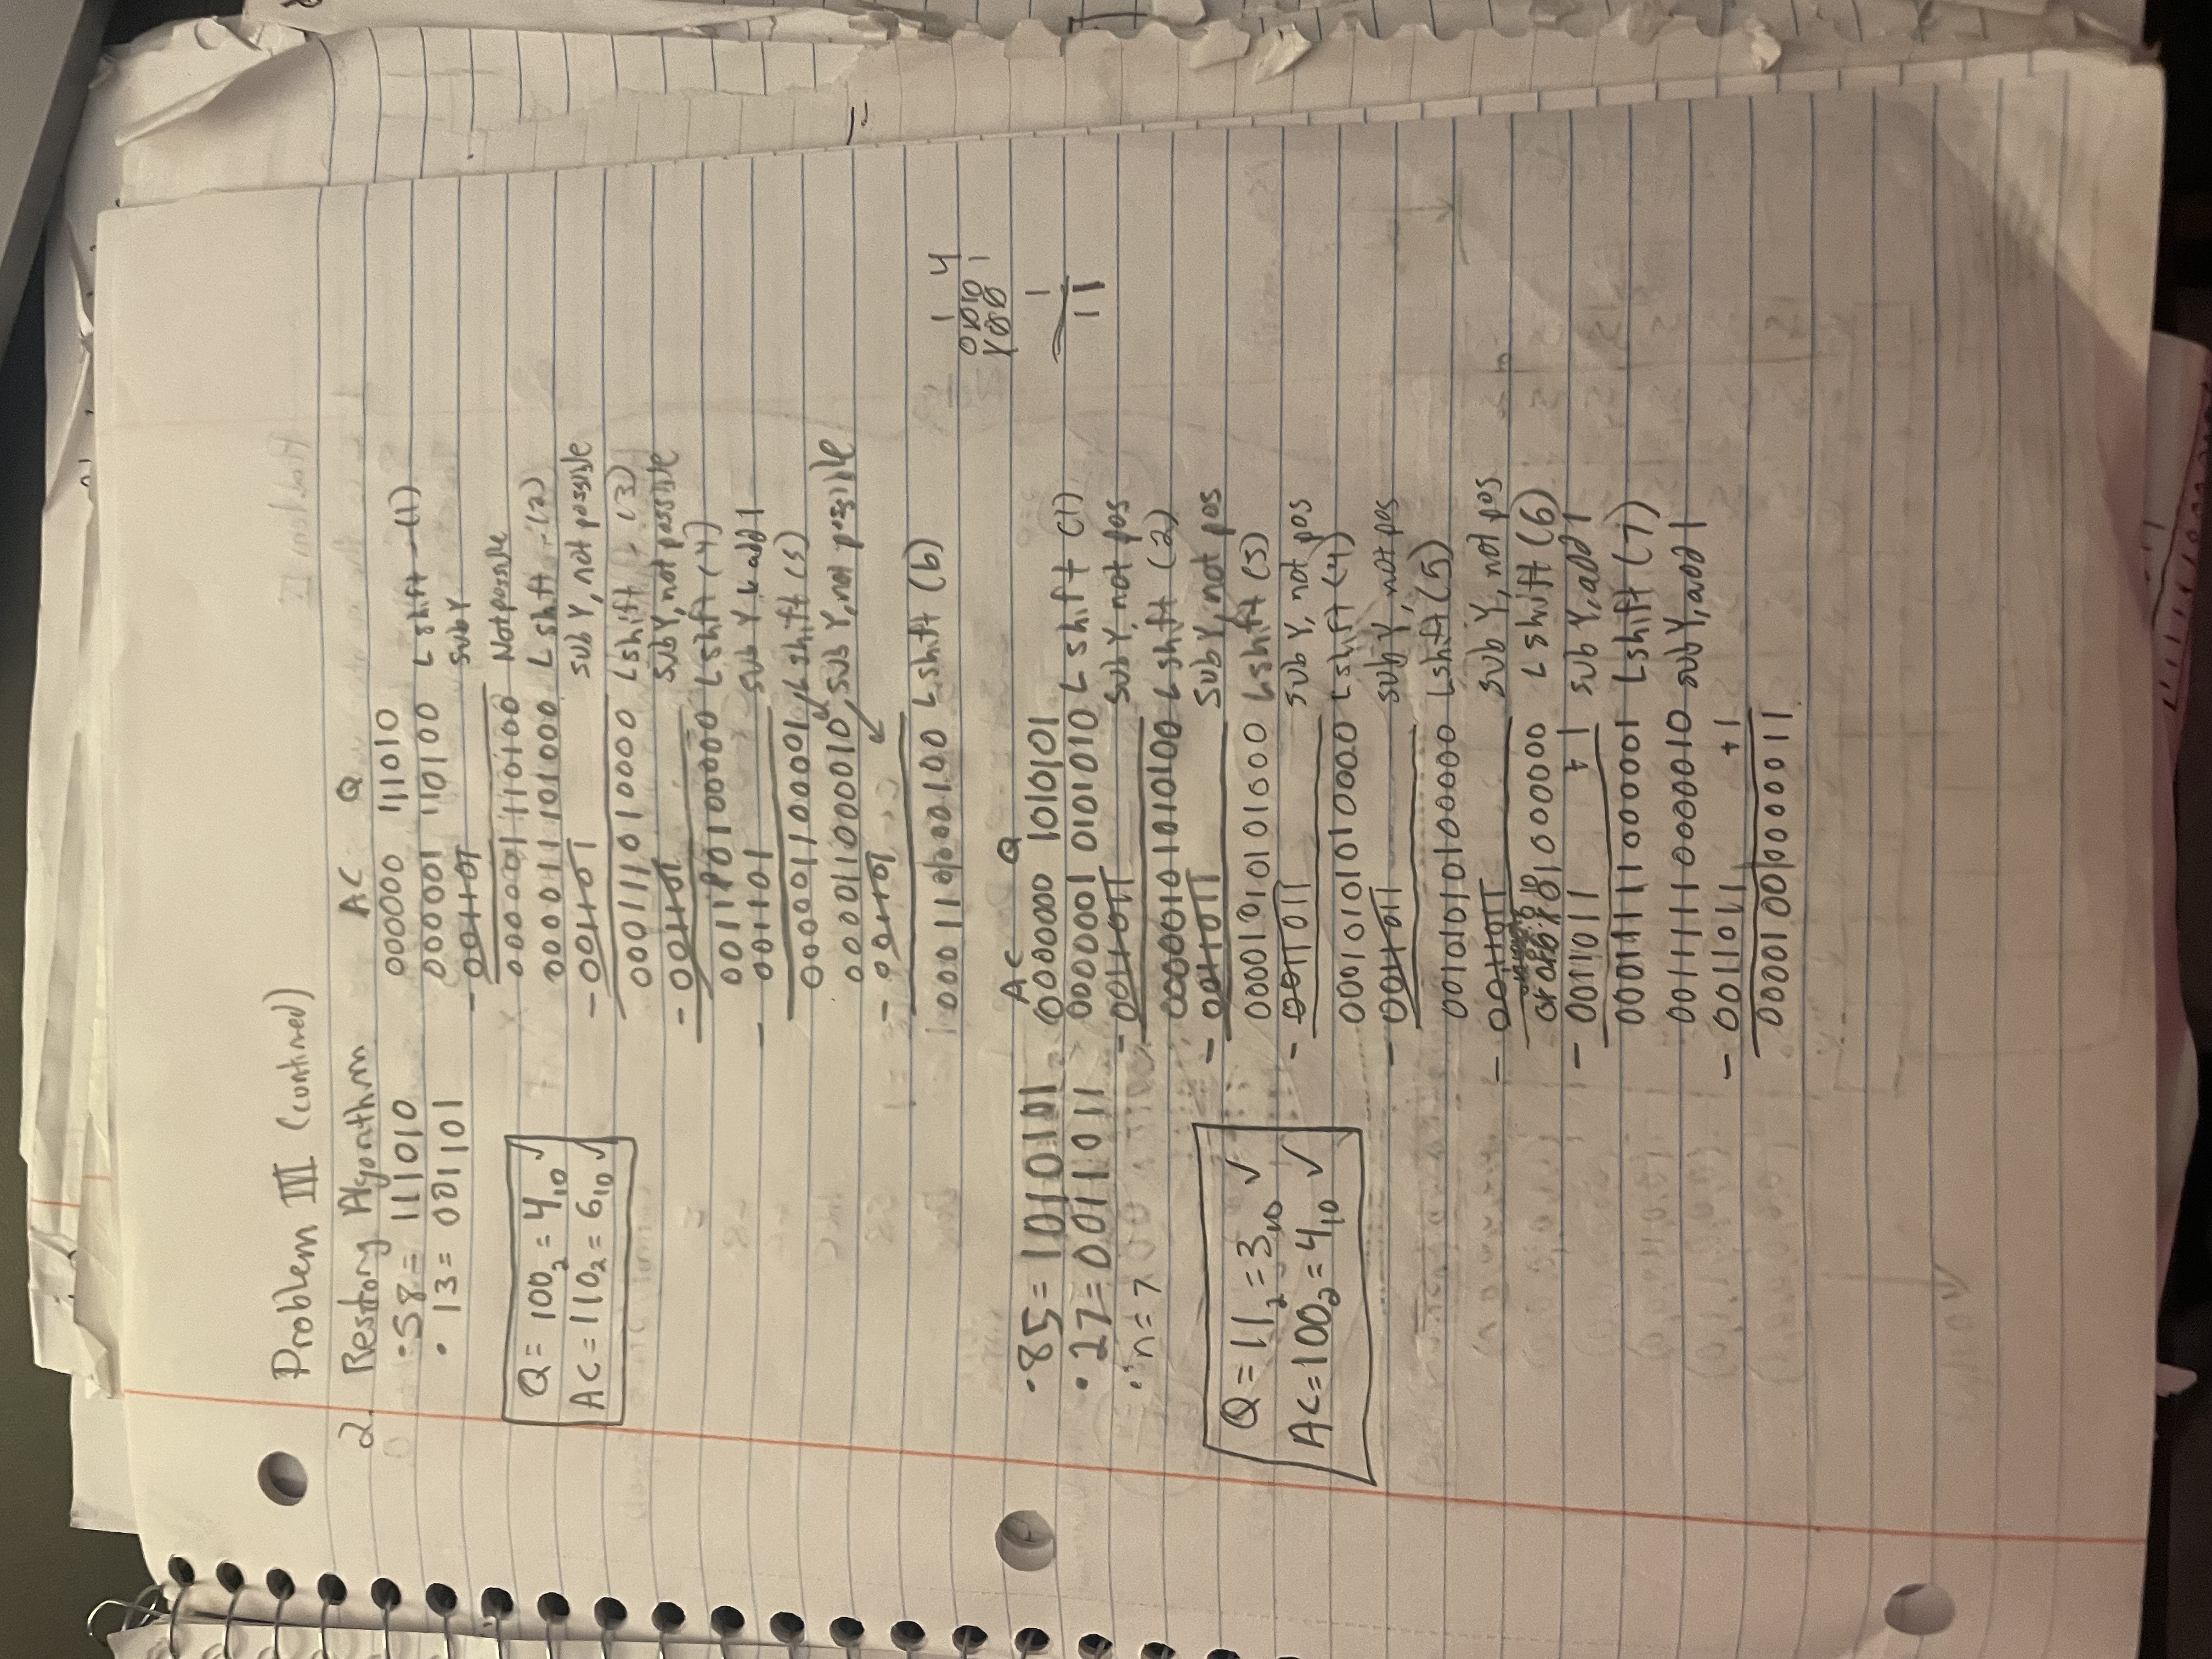 Problem III (continued)
2. Restorng Algorithm
• 58 = 111010
• 13 = 001101
Q = 100₂ = 4₁₀ ✓
AC = 110₂ = 6₁₀ ✓
AC Q
000000 111010
000001 110100 L shift - (1)
- 001101 sub Y
000001 110100 Not possible
000011 101000 L shft - (2)
- 001101 sub Y, not possible
000111010000 L shift - (3)
- 001101 sub Y, not possible
001110100000 L shft (4)
- 001101 sub Y & add 1
000001100001 L shift (5)
000011000010 sub Y, not possible
- 001101
000110|000100 L shift (6)
1 4
1
11
• 85 = 1010101
• 27 = 0011011
• n = 7
Q = 11₂ = 3₁₀ ✓
AC = 100₂ = 4₁₀ ✓
AC Q
0000000 1010101
0000001 0101010 L shift (1)
- 0011011 sub Y, not pos
00000101010100 L shift (2)
- 0011011 sub Y, not pos
00001010101000 L shift (3)
- 0011011 sub Y, not pos
00010101010000 L shift (4)
- 0011011 sub Y, not pos
00101010100000 L shift (5)
- 0011011 sub Y, not pos
1000000 L shift (6)
- 0011011 + 1 sub Y, add 1
00011111000001 L shift (7)
00111110000010 sub Y, add 1
- 0011011 + 1
0000100|0000011